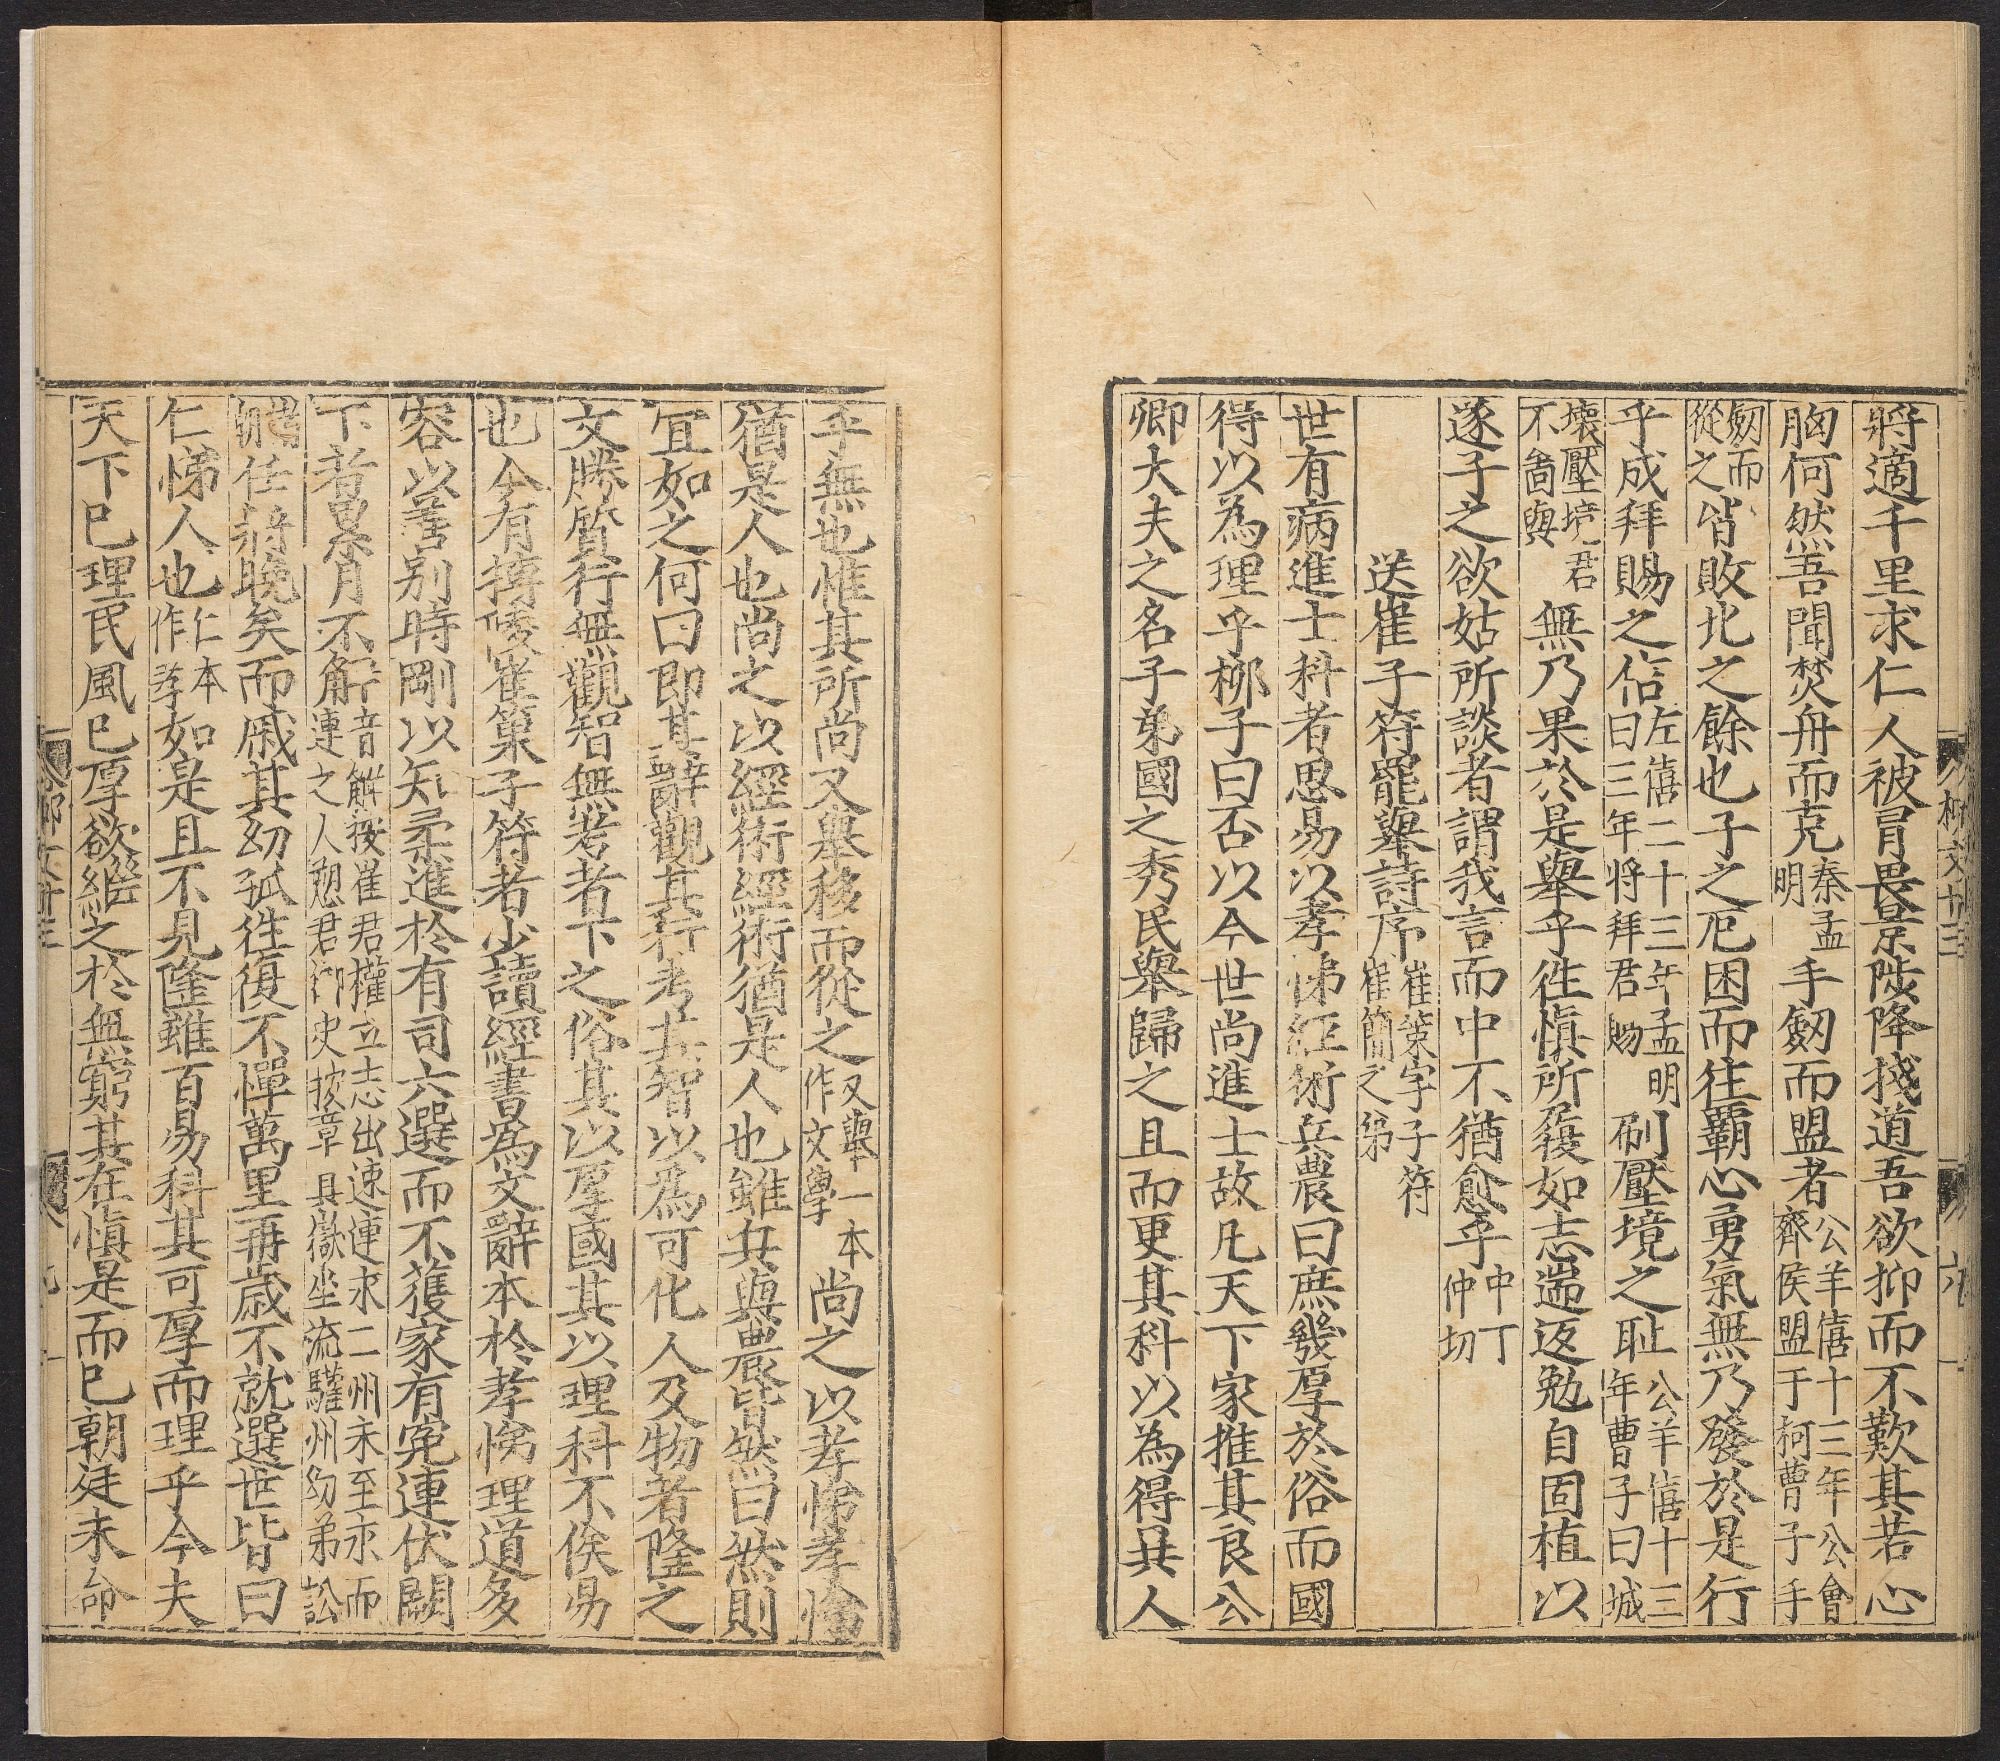 將適千里求仁人被冒畏景陟降棧道吾欲抑而不歎其若心
胸何然吾聞焚舟而克秦孟明手劒而盟者公羊僖十三年公會齊侯盟于柯曹子手
劒而從之皆敗北之餘也子之厄困而往霸心勇氣無乃發於是行
乎成拜賜之信左僖三十三年孟明曰三年將拜君賜刷壓境之恥公羊僖十三年曹子曰城
壞壓境君不啚與無乃果於是舉乎徃愼所履如志遄返勉自固植以
遂子之欲姑所談者謂我言而中不猶愈乎中丁仲切
送崔子符罷舉詩序崔策字子符崔簡之弟
世有病進士科者思易以孝悌經術兵農曰庶幾厚於俗而國
得以為理乎栁子曰否以今世尚進士故凡天下家推其良公
卿大夫之名子弟國之秀民舉歸之且而更其科以為得異人
乎無也惟其所尚又舉移而從之又舉一本作文學尚之以孝悌孝悌
猶是人也尚之以經術經術猶是人也雖兵與農皆然曰然則
宜如之何曰即其辭觀其行考其智以為可化人及物者隆之
文勝質行無觀智無考者下之俗其以厚國其以理科不俟易
也今有博陵崔策子符者少讀經書為文辭本於孝悌理道多
容以善别時剛以知柔進於有司六選而不獲家有寃連伏闕
下者累月不解解音懈按崔君權立志出速連求二州未至亦而連之人愬君御史按章具獄坐流驩州幼弟訟
朝
任將晚矣而戚其幼孤徃復不憚萬里再歲不就選世皆曰
仁悌人也仁本作孝如是且不見隆雖百易科其可厚而理乎今夫
天下已理民風已厚欲繼之於無窮其在愼是而已朝廷未命
柳文廿三